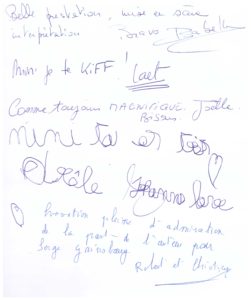 Belle prestation, mise en scène
interprétation Bravo
Mimi je te KiFF! Laet
Comme toujours MAGNIFIQUE. Joëlle
Bisous.
mimi tu es très
drôle
pleine d'admiration
de la part de l'auteur pour
Serge Gainsbourg
Robert et Christiane